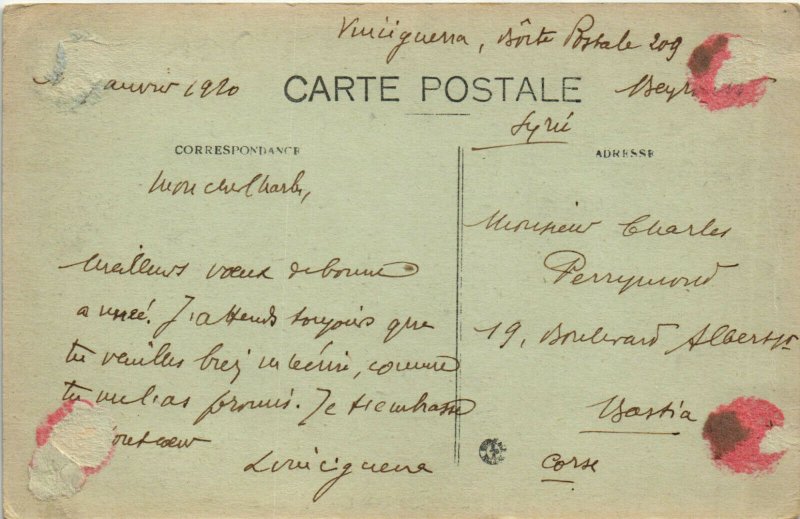 Vinciguerra, Boîte Postale 209
anvier 1920
CARTE POSTALE
Beyr
Syrie
CORRESPONDANCE
ADRESSE
Mon cher Charles,
Meilleurs vœux de bonne
année. J'attends toujours que
tu veuilles bien m'écrire, comme
tu me l'as promis. Je t'embrasse
tout cœur
Vinciguerra
Monsieur Charles
Perrymond
19, Boulevard Albert 1er
Bastia
Corse